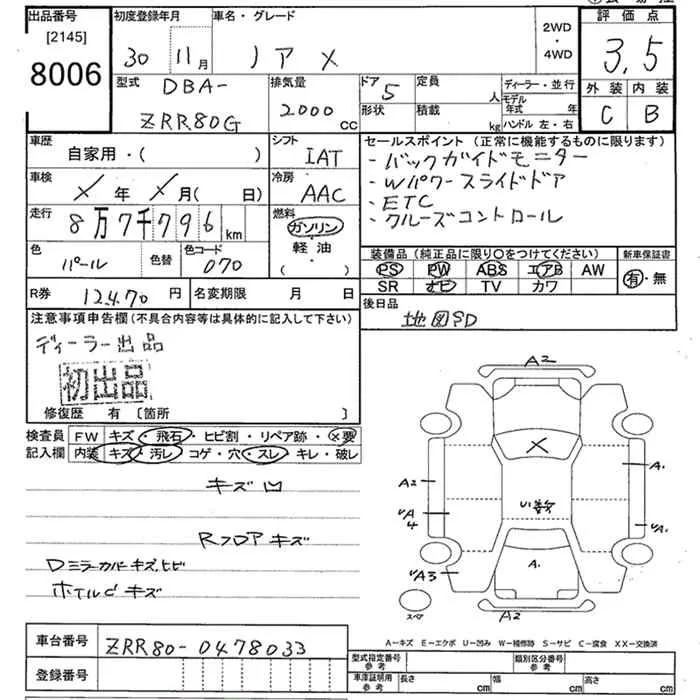 出品番号
[2145]
8006
初度登録年月
30 11月
車名・グレード
ノア X
2WD
・
4WD
評価点
3.5
外装 内装
C B
型式
DBA-
ZRR80G
排気量
2000 cc
ドア 5
形状
定員 人
積載 kg
ディーラー・並行
モデル年式 年
ハンドル 左・右
車歴
自家用・( )
シフト
IAT
車検
X 年 X 月( 日)
冷房
AAC
走行
8万7千796 km
燃料
ガソリン
軽油
( ・ )
色
パール
色替
色コード
070
R券 12470 円
名変期限 月 日
セールスポイント (正常に機能するものに限ります)
・バックガイドモニター
・Wパワースライドドア
・ETC
・クルーズコントロール
装備品 (純正品に限り〇をつけてください) 新車保証書
PS PW ABS エアB AW 有・無
SR ナビ TV カワ
後日品
地図SD
注意事項申告欄(不具合内容等は具体的に記入して下さい)
ディーラー出品
初出品
修復歴 有 〔箇所 〕
検査員記入欄
FW キズ・飛石・ヒビ割・リペア跡・×要
内装 キズ・汚レ・コゲ・穴・スレ・キレ・破レ
キズ凹
Rフロアキズ
Dミラーカバーキズヒビ
ホイルCキズ
A2
X
A2
A1
4
A
A.
A3
A2
スペア
A-キズ E-エクボ U-凹み W-補修跡 S-サビ C-腐食 XX-交換済
車台番号
ZRR80-0478033
登録番号
型式指定番号 参考
類別区分番号 参考
車庫証明用 参考
長さ cm
幅 cm
高さ cm